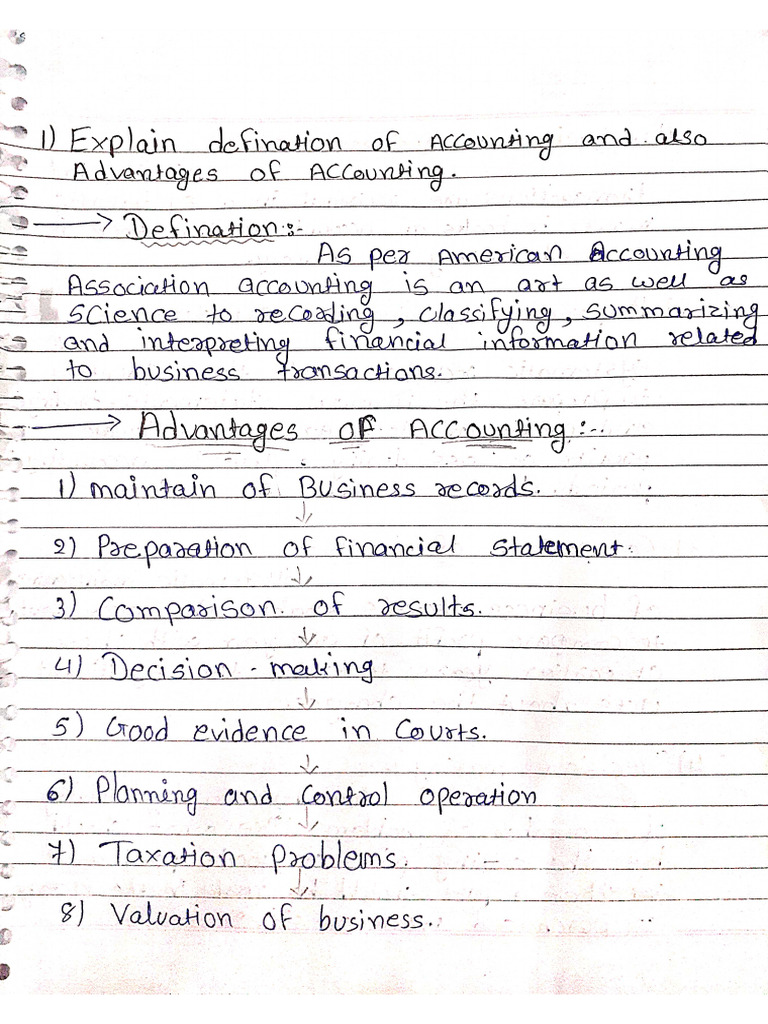 1) Explain defination of Accounting and also
Advantages of Accounting.
→ Defination:-
As per American Accounting
Association accounting is an art as well as
science to recording, classifying, summarizing
and interpreting financial information related
to business transactions.
→ Advantages of Accounting:-
1) maintain of Business records.
↓
2) Preparation of financial statement.
↓
3) Comparison of results.
↓
4) Decision - making
↓
5) Good evidence in Courts.
↓
6) Planning and Control operation
↓
7) Taxation Problems.
↓
8) Valuation of business.